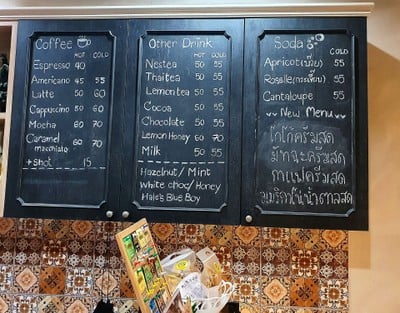 Coffee
HOT COLD
Espresso 40
Americano 45 55
Latte 50 60
Cappuccino 50 60
Mocha 60 70
Caramel macchiato 60 70
+Shot 15
Other Drink
HOT COLD
Nestea 50 55
Thaitea 50 55
Lemontea 50 55
Cocoa 50 55
Chocolate 50 55
Lemon Honey 60 70
Milk 50 55
Hazelnut / Mint
White choc / Honey
Hale's Blue Boy
Soda
HOT COLD
Apricot (บ๊วย) 55
Roselle (กระเจี๊ยบ) 55
Cantaloupe 55
New Menu
โกโก้ครีมสด
มัทฉะครีมสด
กาแฟครีมสด
อเมริกาโน่น้ำตาลสด